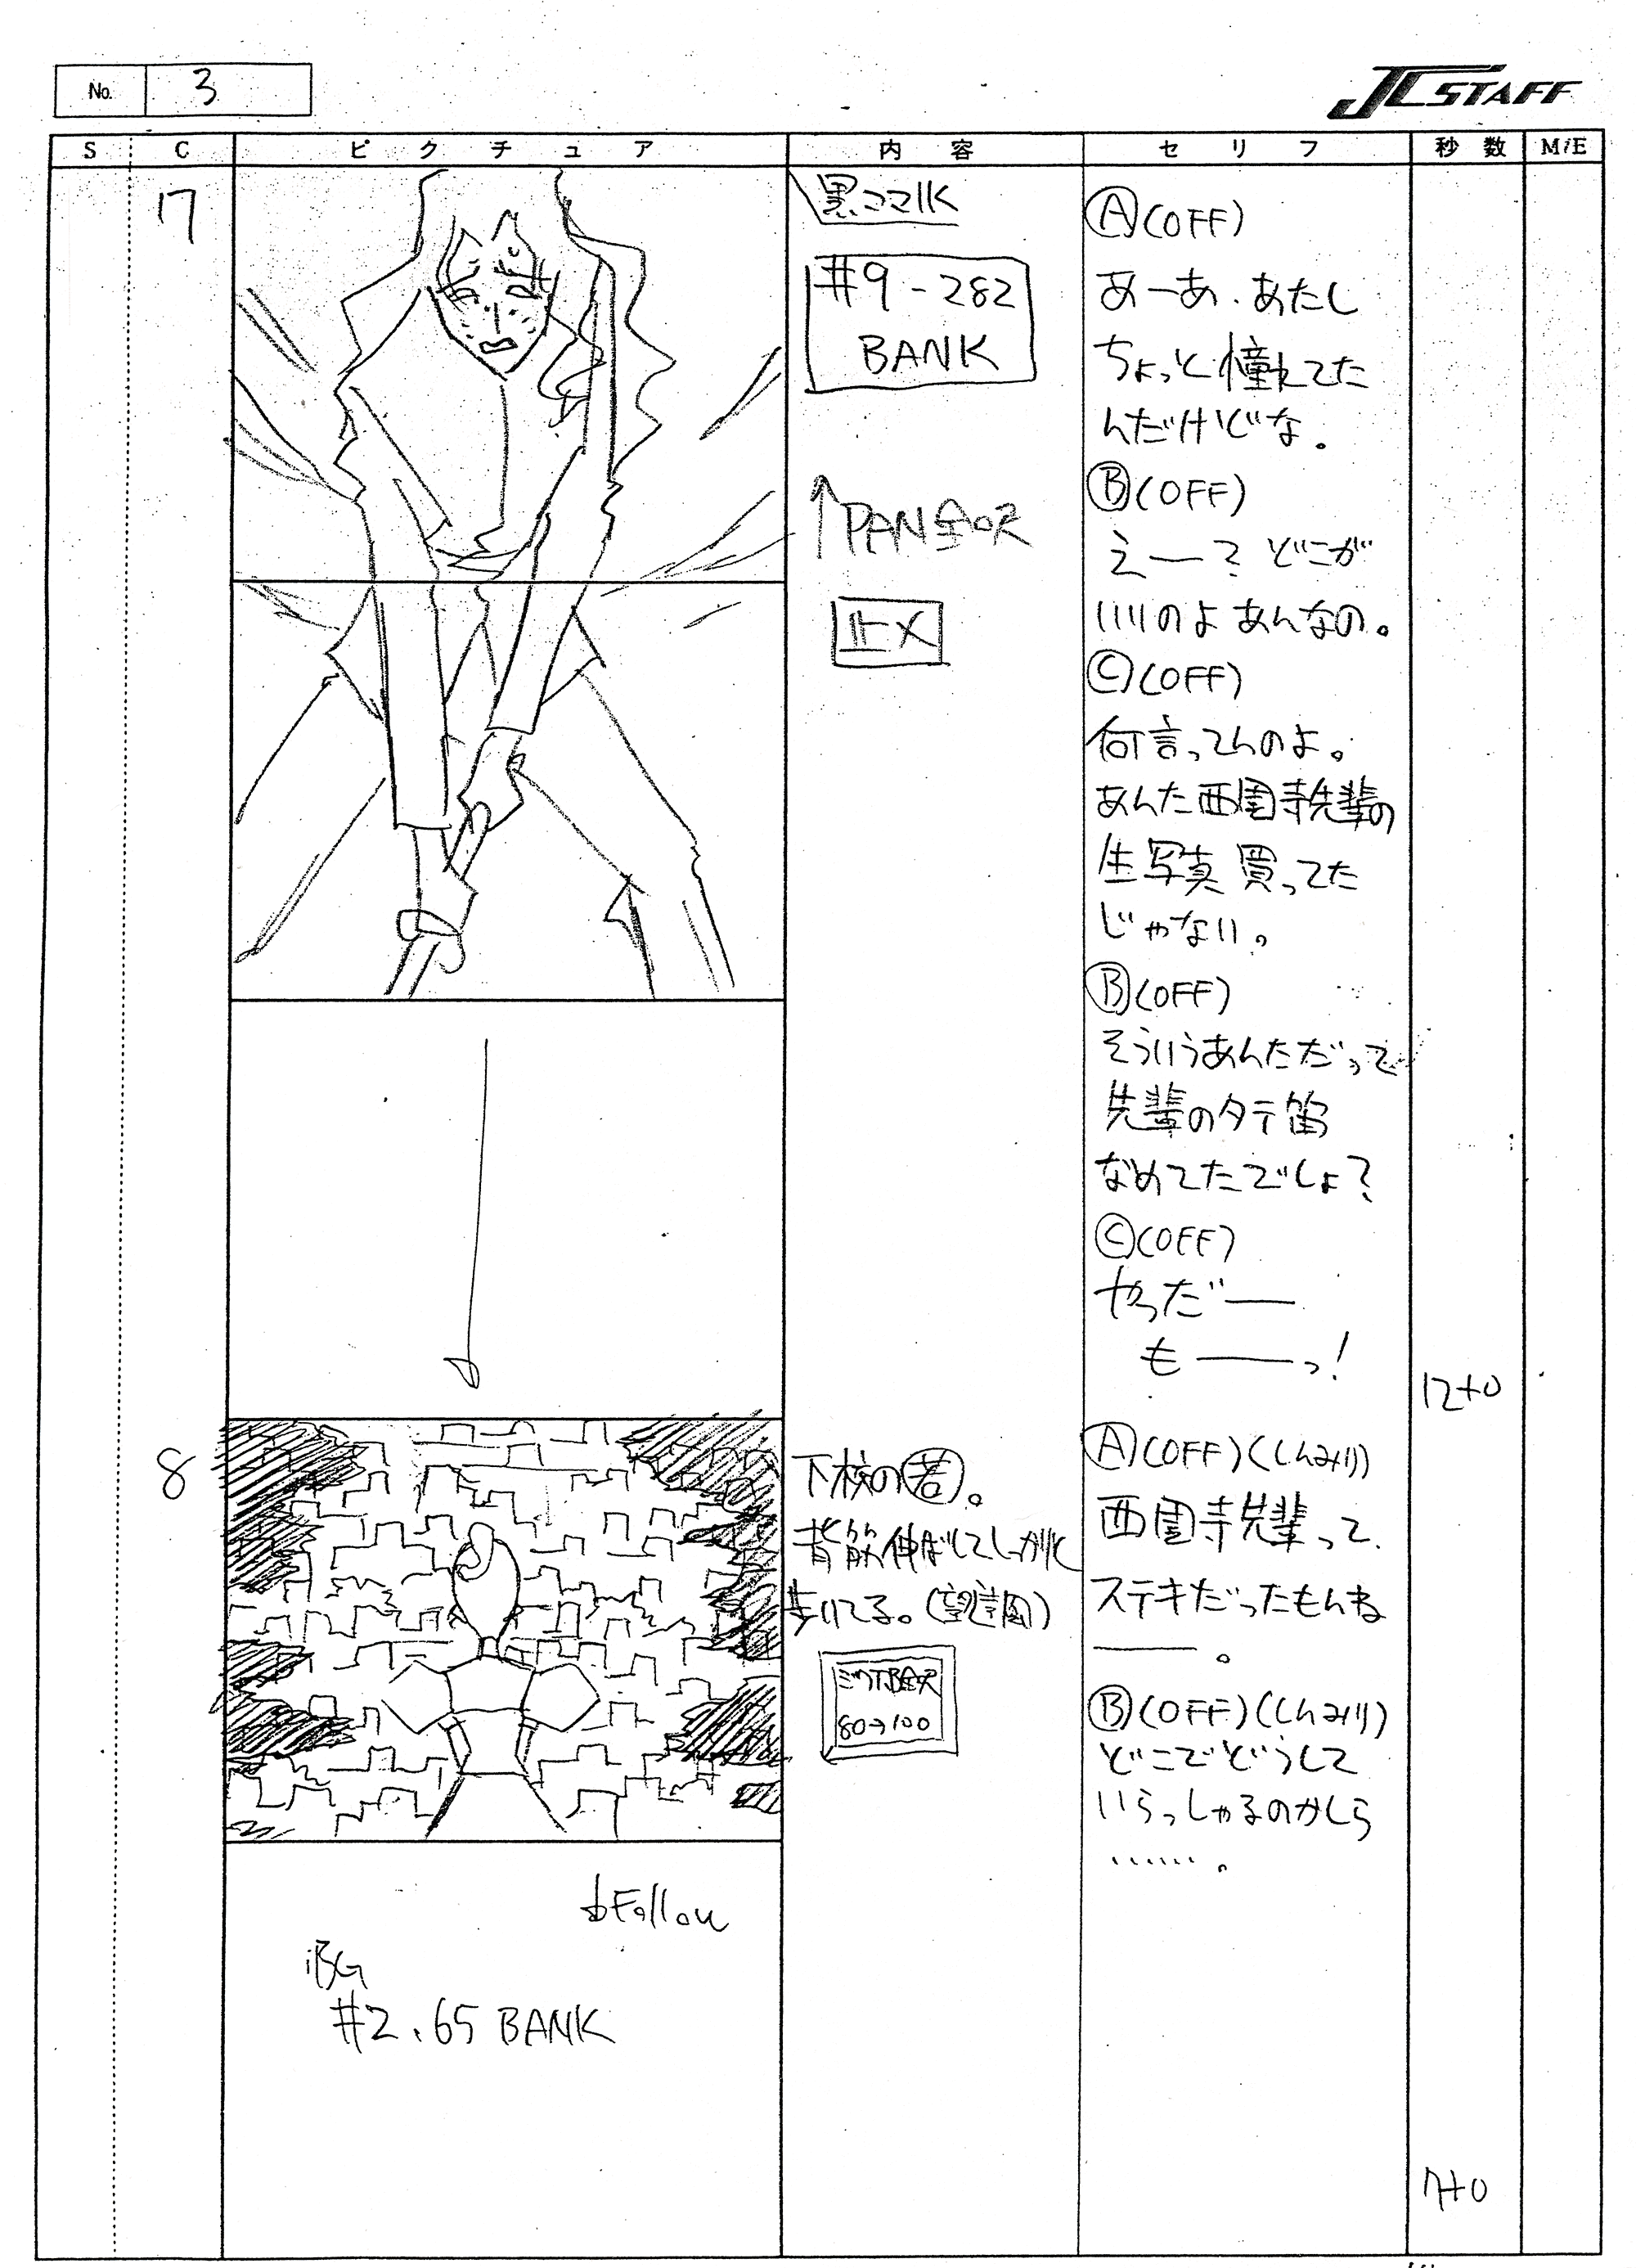 No. 3
JCSTAFF
S C ピクチュア 内容 セリフ 秒数 M/E
17
黒コマIK
#9-282
BANK
PAN
止メ
Ⓐ(OFF)
あーあ・あたし
ちょっと憧れてた
んだけどな。
Ⓑ(OFF)
えー？どこが
いいのよあんなの。
Ⓒ(OFF)
何言ってんのよ。
あんた西園寺先輩の
生写真買ってた
じゃない。
Ⓑ(OFF)
そういうあんただって
先輩のタテ笛
なめてたでしょ？
Ⓒ(OFF)
やっだー
もーっ！
12+0
8
下校の若。
背筋伸ばしてしっかりと
歩いてる。(望遠風)
80→100
Ⓐ(OFF)(しんみり)
西園寺先輩って
ステキだったもんね
ー。
Ⓑ(OFF)(しんみり)
どこでどうして
いらっしゃるのかしら
……。
Follow
BG
#2.65 BANK
7+0